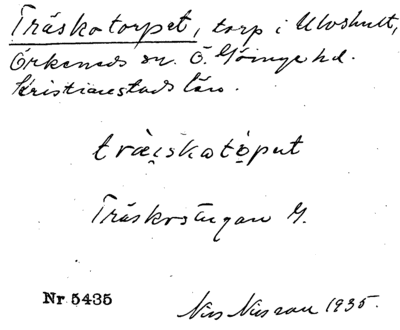 Träskatorpet, torp i Ulvshult,
Örkeneds sn. Ö. Göinge hd.
Kristianstads län.
träi̯skatòput
G.
Nr 5435
Nils Nilsson 1935.